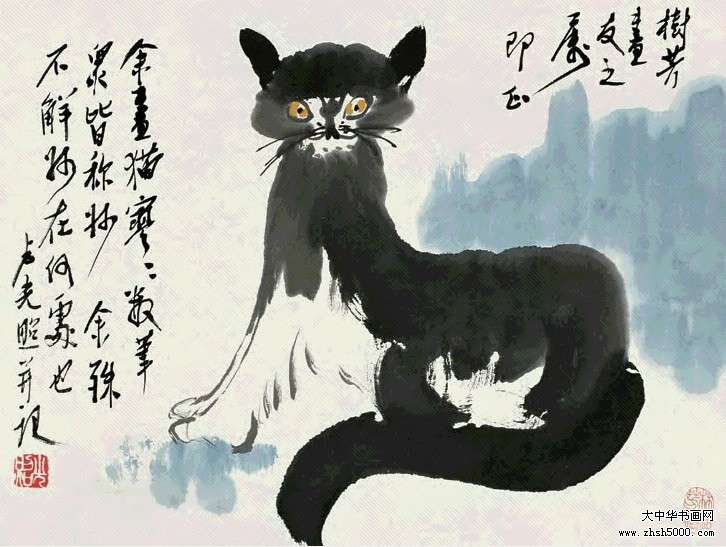 樹芳
畫
友之
屬
即正
余畫猫寥〻数筆
衆皆称妙 余殊
不解妙在何處也
卢光照并記
大中华书画网
www.zhsh5000.com